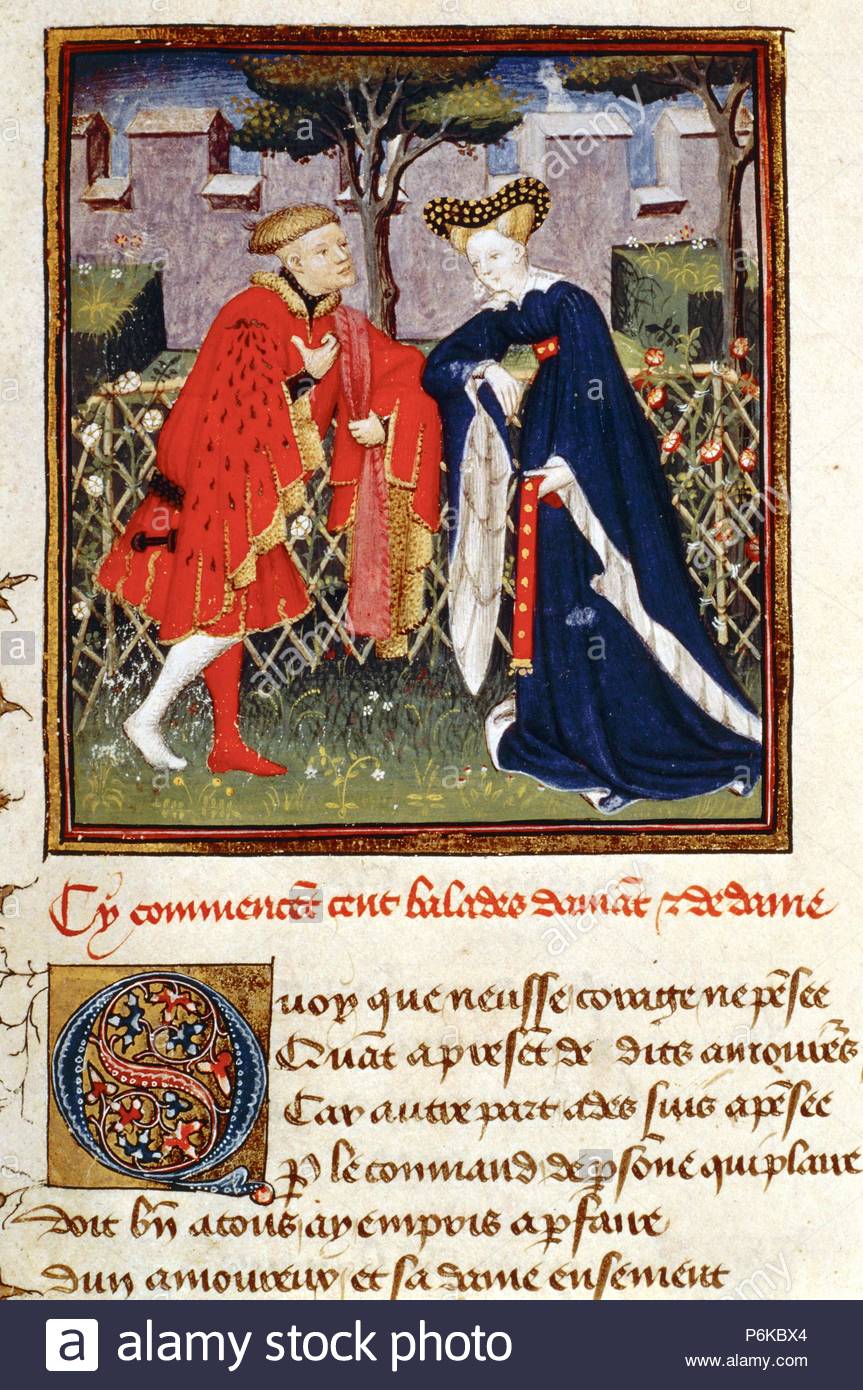 Cy commencēt cent balades damāt ⁊ de dame
Quoy que neusse corage ne pēsee
Quāt a present de dits amoureus
Car autre part ades suis apēsee
ꝑ le command de ꝑsōne qui plaire
doit bn̄ a tous ay empris a ꝑfaire
dun amoureux et sa dame ensement
a alamy stock photo
P6KBX4
www.alamy.com